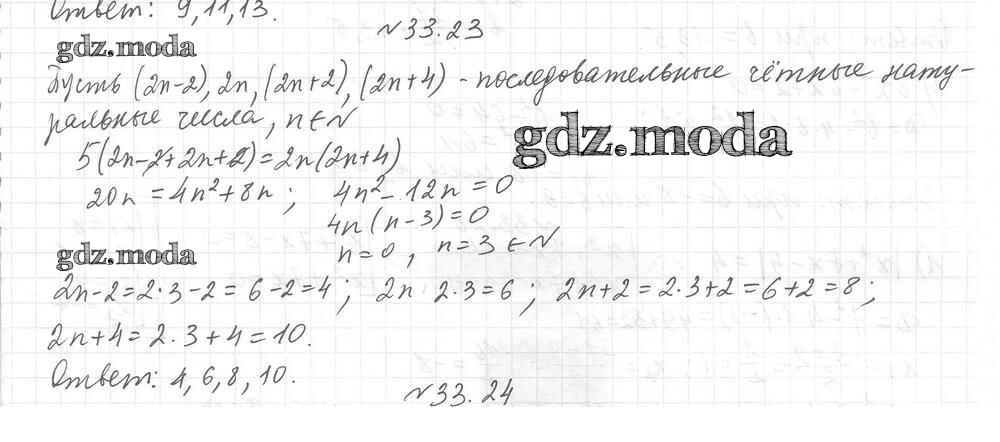 Ответ: 9, 11, 13.
№33.23
gdz.moda
Пусть (2n-2), 2n, (2n+2), (2n+4) - последовательные чётные нату-
ральные числа, n∈N
gdz.moda
5(2n-2+2n+2)=2n(2n+4)
20n = 4n²+8n ; 4n²- 12n = 0
4n(n-3)=0
n=0, n=3 ∈ N
gdz.moda
2n-2=2·3-2= 6-2=4 ; 2n 2·3=6 ; 2n+2=2·3+2=6+2=8 ;
2n+4=2·3+4=10.
Ответ: 4, 6, 8, 10.
№33.24